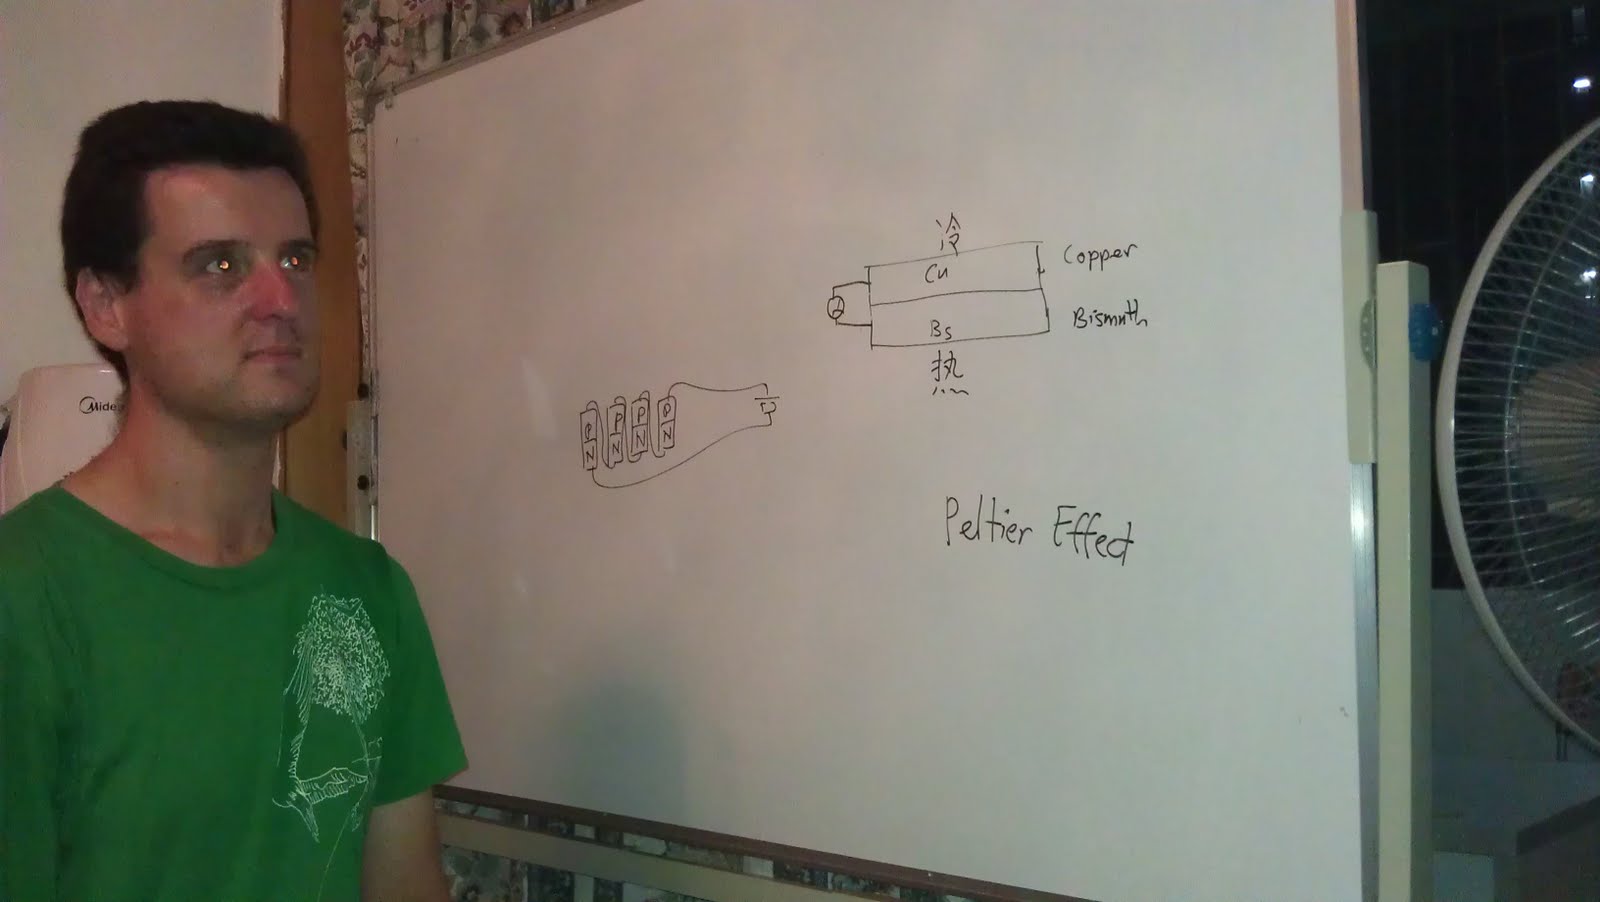 冷
Cu
Copper
Bs
Bismuth
热
P P P P
N N N N
Peltier Effect
Midea